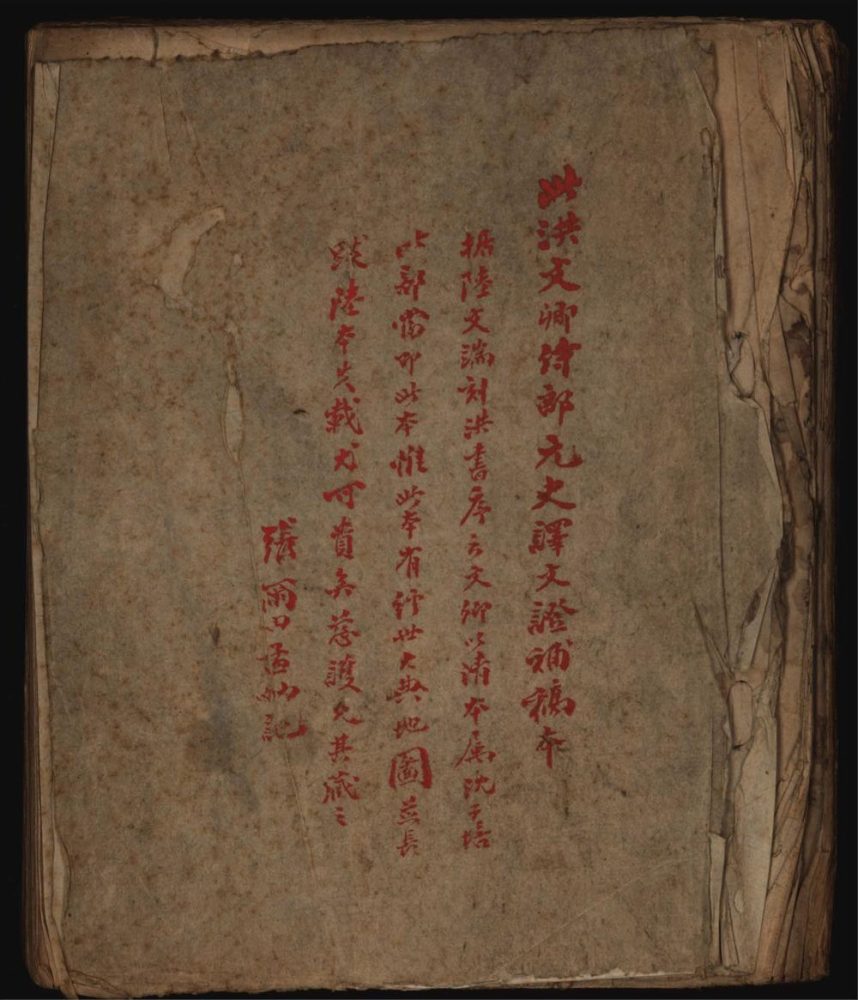 此洪文卿侍郎元史譯文證補稿本
據陸文端刻洪書序云文卿以清本属沈子培
比部當即此本惟此本有經世大典地圖並長
跋陸本失載尤可貴矣慈護兄其藏之
張爾田孟劬記